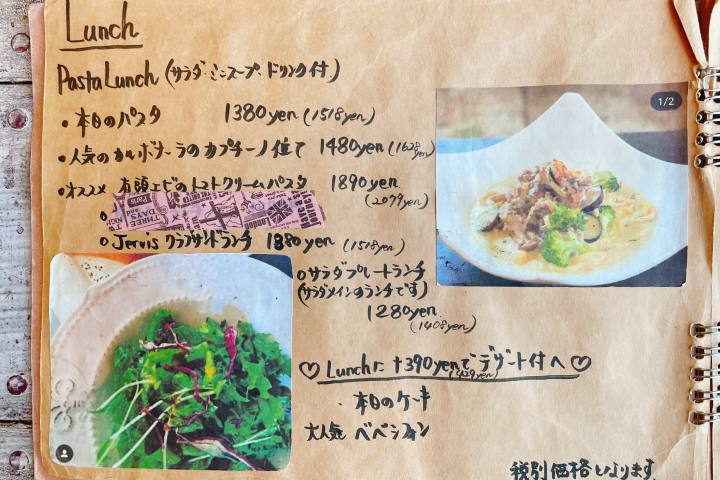 Lunch
Pasta Lunch (サラダ・ミニスープ、ドリンク付)
・本日のパスタ 1380yen (1518yen)
・人気のカルボナーラのカプチーノ仕立て 1480yen (1628yen)
・オススメ 有頭エビのトマトクリームパスタ 1890yen (2079yen)
○ Jervis クラブサンドランチ 1380yen (1518yen)
○サラダプレートランチ
(サラダメインのランチです)
1280yen
(1408yen)
♡ Lunchに+390yenでデザート付へ♡
(429yen)
・本日のケーキ
大人気 べべシフォン
税別価格となります
1/2